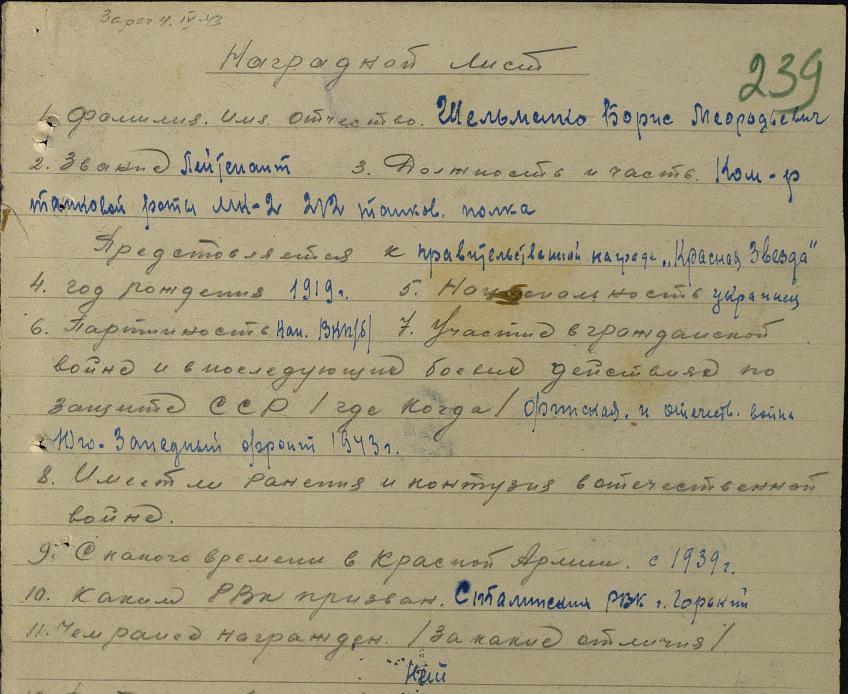 Зарег 4. IV-43
239
Наградной лист
1. Фамилия. имя. отчество. Шельменко Борис Мефодьевич
2. Звание Лейтенант 3. Должность и часть. Ком-р
танковой роты МК-2 212 танков. полка
Представляется к правительственной награде „Красная Звезда"
4. год рождения 1919 г. 5. Национальность украинец
6. Партийность Кан. ВКП/б/ 7. Участие в гражданской
войне и в последующие боевые действиях по
защите ССР / где когда / Финская. и отечеств. война
Юго-Западный фронт 1943 г.
8. Имеет ли ранения и контузия в отечественной
войне.
9. С какого времени в Красной Армии. с 1939 г.
10. Каким РВК призван. Сталинским РВК г. Горький
11. Чем ранее награжден. / За какие отличия /
Нет